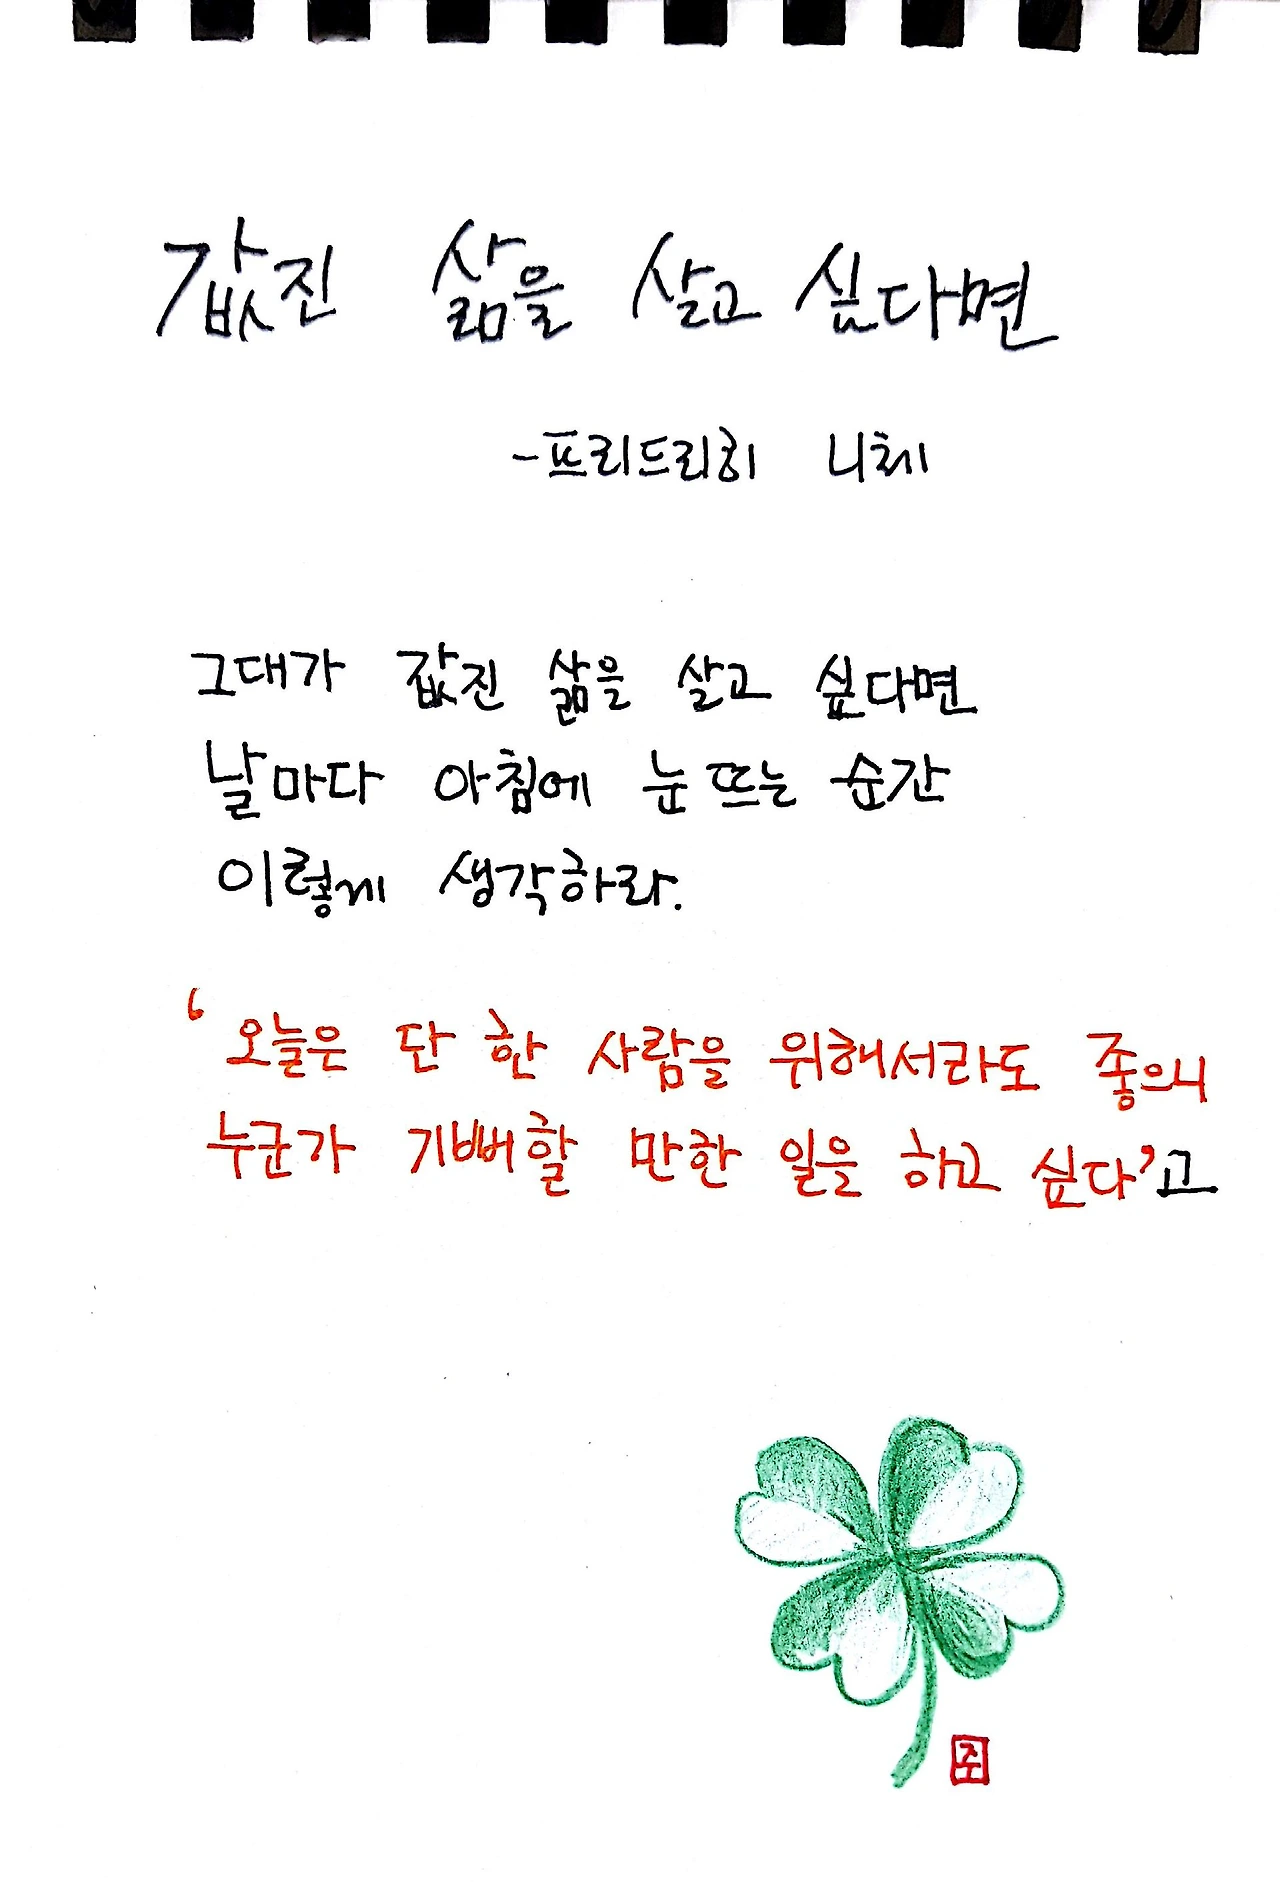 값진 삶을 살고 싶다면
-프리드리히 니체
그대가 값진 삶을 살고 싶다면
날마다 아침에 눈뜨는 순간
이렇게 생각하라.
‘오늘은 단 한 사람을 위해서라도 좋으니
누군가 기뻐할 만한 일을 하고 싶다’고
주